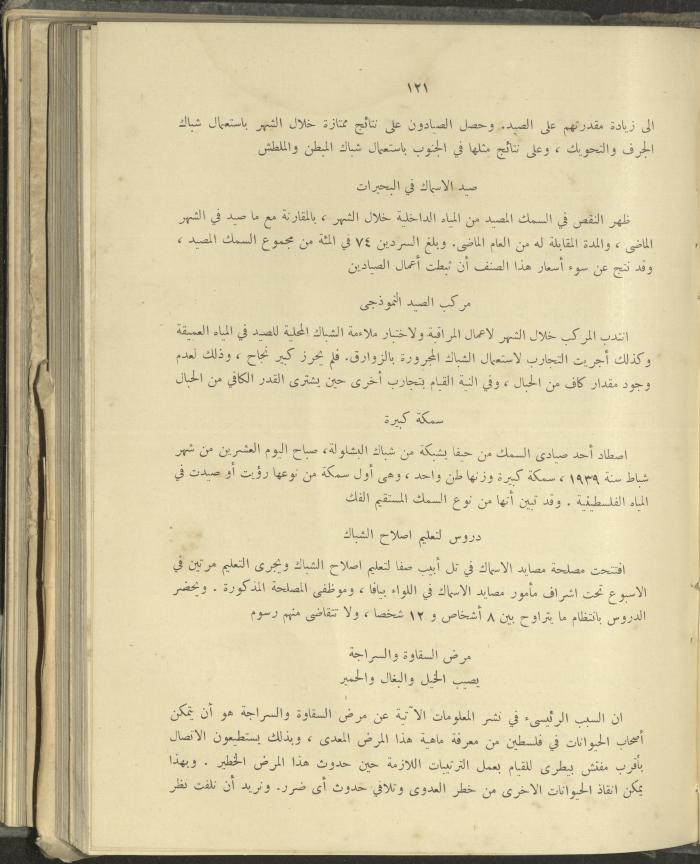 ١٢١
الى زيادة مقدرتهم على الصيد. وحصل الصيادون على نتائج ممتازة خلال الشهر باستعمال شباك
الجرف والتحويك ، وعلى نتائج مثلها في الجنوب باستعمال شباك المبطن والملطش
صيد الاسماك في البحيرات
ظهر النقص في السمك المصيد من المياه الداخلية خلال الشهر ، بالمقارنة مع ما صيد في الشهر
الماضي ، والمدة المقابلة له من العام الماضي. وبلغ السردين ٧٤ في المئة من مجموع السمك المصيد ،
وقد نتج عن سوء أسعار هذا الصنف أن ثبطت أعمال الصيادين
مركب الصيد النموذجى
انتدب المركب خلال الشهر لاعمال المراقبة ولاختبار ملاءمة الشباك المحلية للصيد في المياه العميقة
وكذلك أجريت التجارب لاستعمال الشباك المجرورة بالزوارق. فلم يحرز كبير نجاح ، وذلك لعدم
وجود مقدار كاف من الحبال ، وفي النية القيام بتجارب أخرى حين يشترى القدر الكافي من الحبال
سمكة كبيرة
اصطاد أحد صيادى السمك من حيفا بشبكة من شباك الشلولة، صباح اليوم العشرين من شهر
شباط سنة ١٩٣٩ ، سمكة كبيرة وزنها طن واحد ، وهى أول سمكة من نوعها رؤيت أو صيدت في
المياه الفلسطينية . وقد تبين أنها من نوع السمك المستقيم الفك
دروس لتعليم اصلاح الشباك
افتتحت مصلحة مصايد الاسماك في تل أبيب صفا لتعليم اصلاح الشباك ويجرى التعليم مرتين في
الاسبوع تحت اشراف مأمور مصايد الاسماك في اللواء بيافا ، وموظفى المصلحة المذكورة . ويحضر
الدروس بانتظام ما يتراوح بين ٨ أشخاص و ١٢ شخصا ، ولا تتقاضى منهم رسوم
مرض السقاوة والسراجة
يصيب الخيل والبغال والحمير
ان السبب الرئيسىء في نشر المعلومات الآتية عن مرض السقاوة والسراجة هو أن يتمكن
أصحاب الحيوانات في فلسطين من معرفة ماهية هذا المرض المعدى ، وبذلك يستطيعون الاتصال
بأقرب مفتش بيطرى للقيام بعمل الترتيبات اللازمة حين حدوث هذا المرض الخطير . وبهذا
يمكن انقاذ الحيوانات الاخرى من خطر العدوى وتلافي حدوث أى ضرر. ونريد أن نلفت نظر